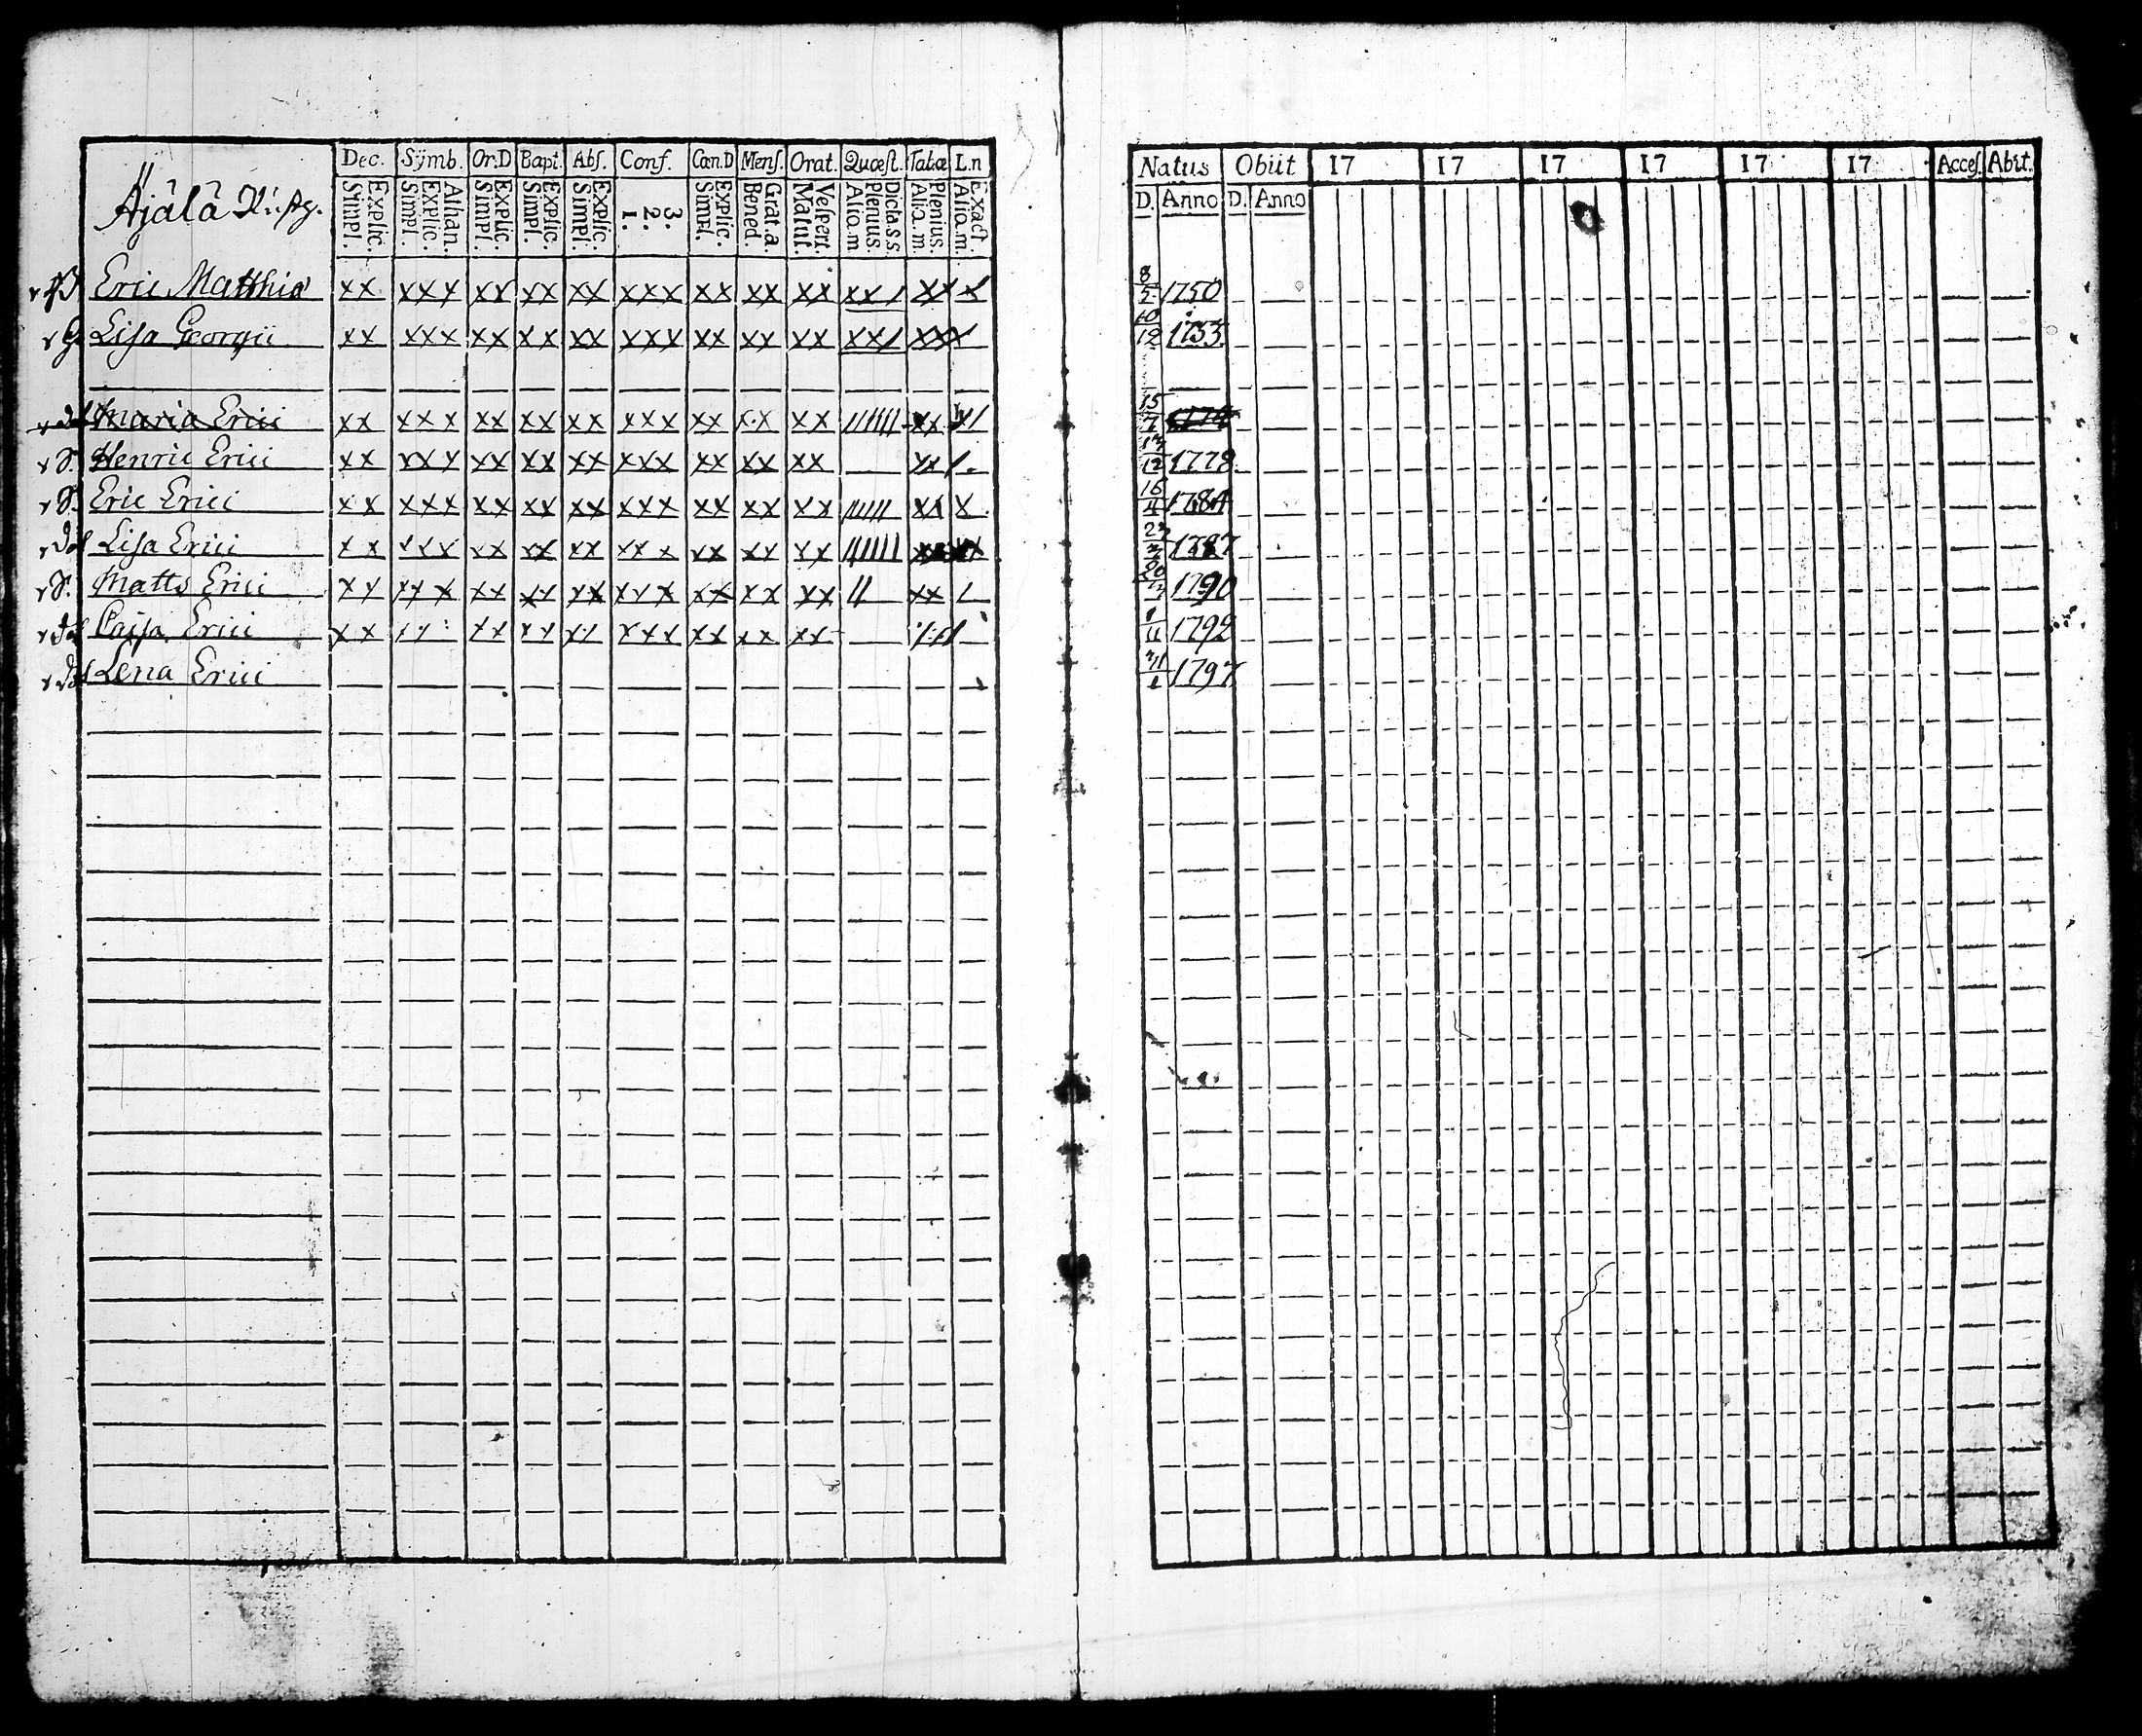 Dec. Sÿmb. Or:D Bapt. Abſ. Conf. Cœn.D Menſ. Orat. Quœſt. Tabæ L.n
Explic. Simpl. Athan. Explic. Simpl. Explic. Simpl. Explic. Simpl. Explic. Simpl. 3. 2. 1. Explic. Simpl. Grat.a. Bened. Veſpert. Matut. Dicta.s.s. Plenius. Alio.m Plenius. Alio.m. Exact. Alio.m.
Äjälä
Eric Matthiæ xx xxx xx xx xx xxx xx xx xx
Liſa Georgii xx xxx xx xx xx xxx xx xx xx
Maria Erici xx xxx xx xx xx xxx xx xx xx
S. Henric Erici xx xxx xx xx xx xxx xx xx xx
S. Eric Erici xx xxx xx xx xx xxx xx xx xx
Liſa Erici xx xxx xx xx xx xxx xx xx xx
S. Matts Erici xx xxx xx xx xx xxx xx xx xx
Caiſa Erici xx xx xx xxx xx xx xx
Lena Erici
Natus Obiit 17 17 17 17 17 17 Acceſ. Abit.
D. Anno D. Anno
8/5 1750
10/12 1753
15/7
1778
16/4 1784
1787
1790
1/11 1792
1797